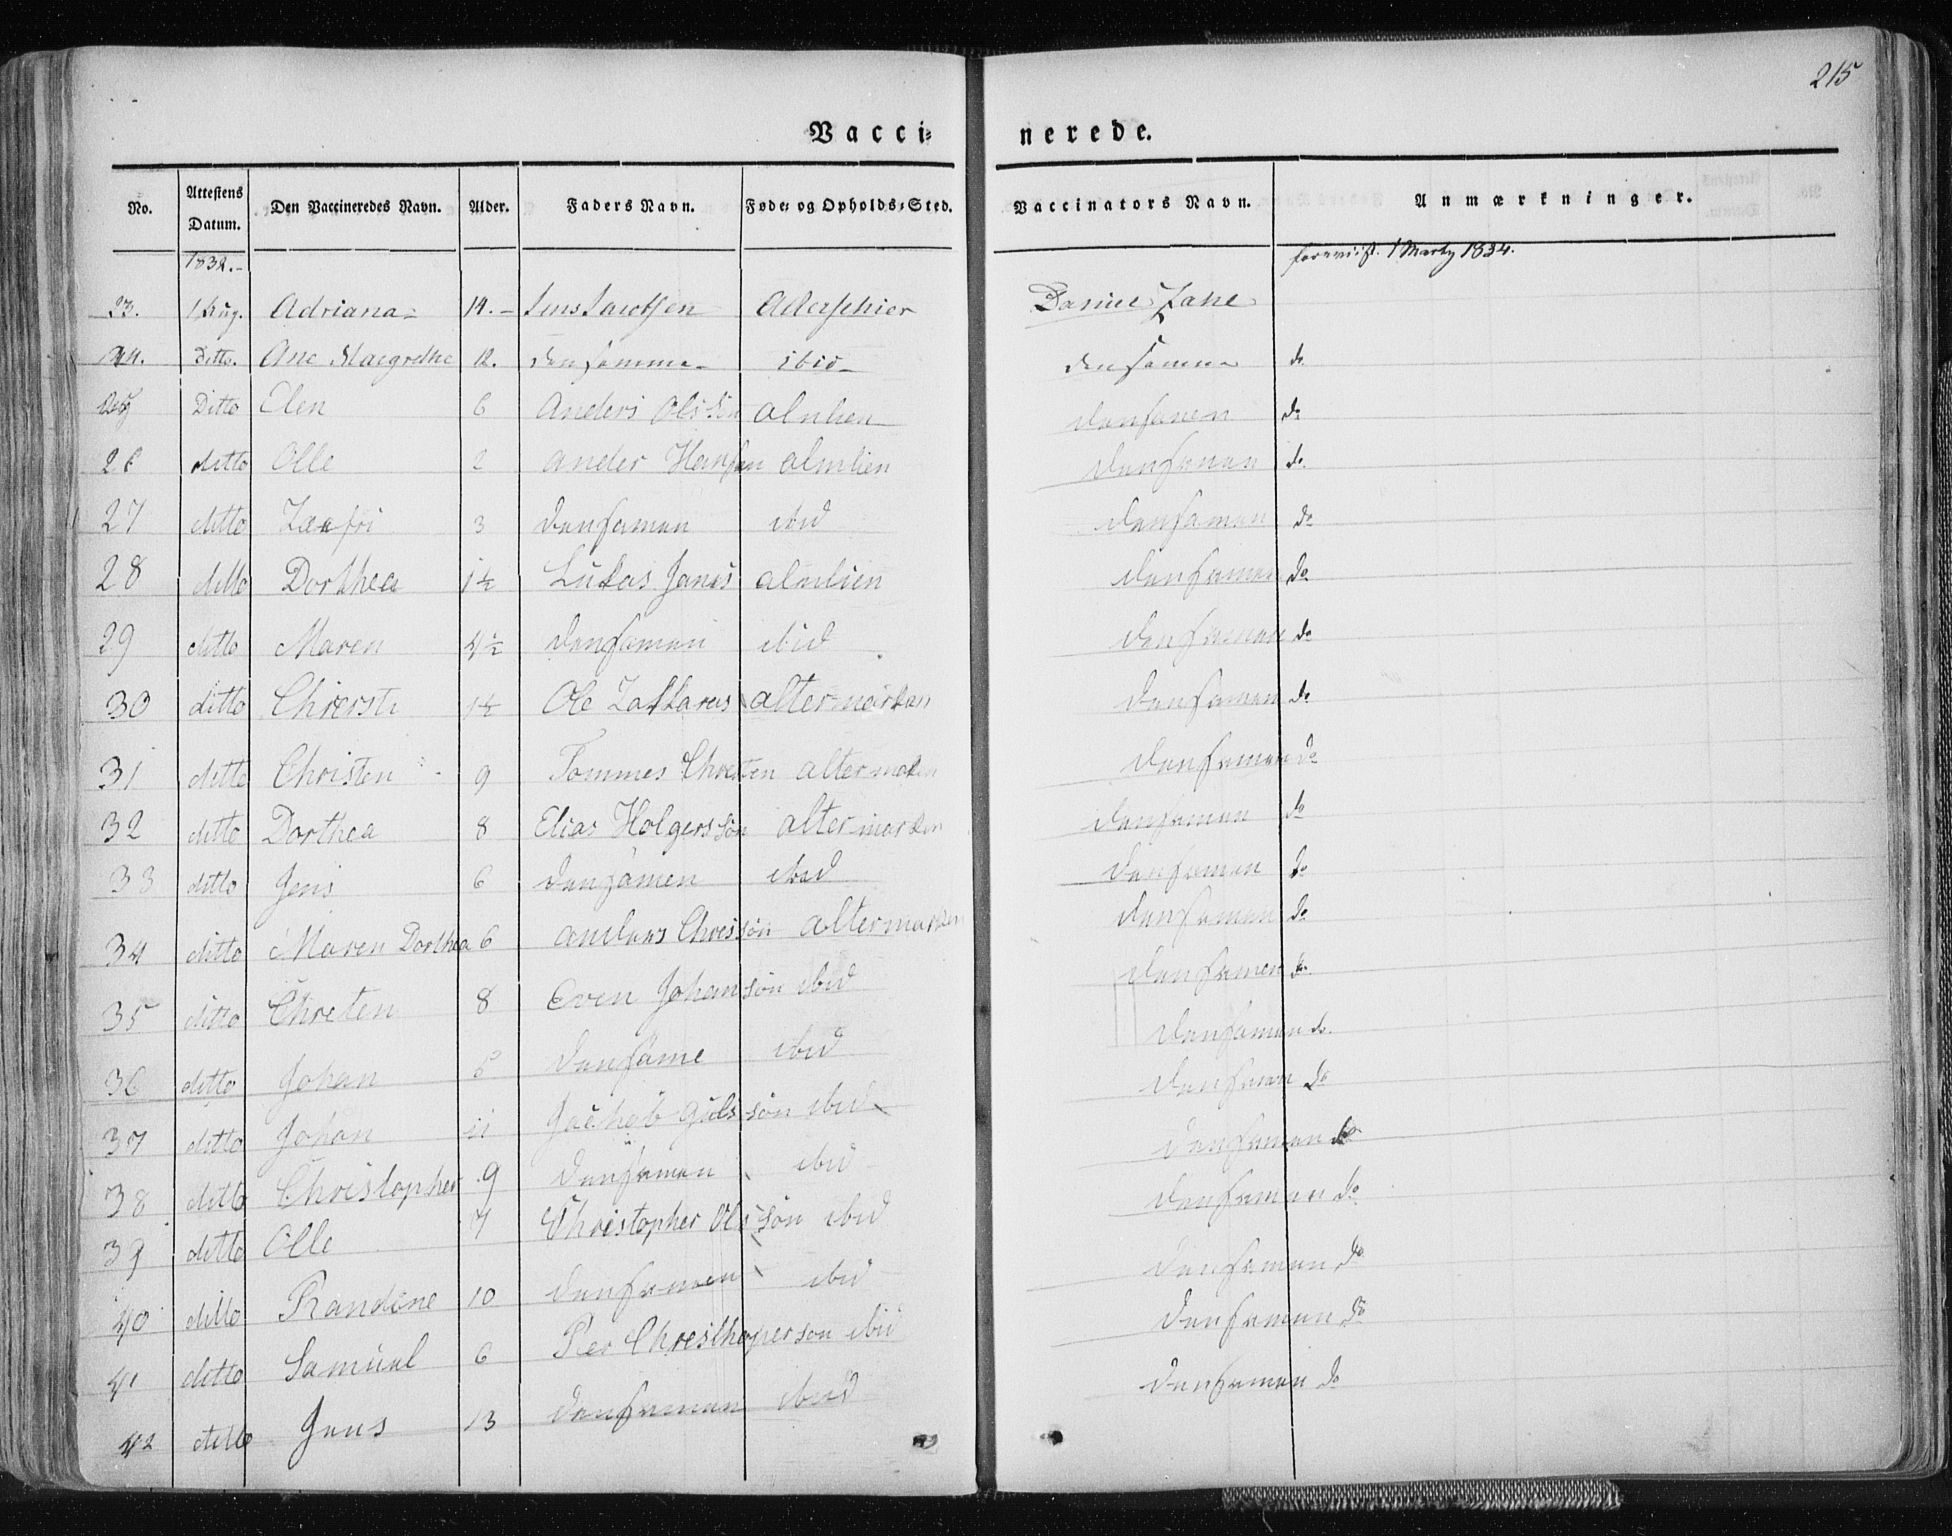 215
Vacci= nerede.
No. Attestens Datum. Den Vaccineredes Navn. Alder. Faders Navn. Føde- og Opholds-Sted. Vaccinators Navn. Anmærkninger.
1832.- 1 Marty 1834.
23. 1 Aug. Adriana 14. Jens Daniel
24. Ditto. Ane Margrethe 12. densamme ibid densamme do
Ditto Elen 6 Anders Olssøn almlien densamen do
26 ditto Olle 2 ander Hansen almlien densamen do
27 ditto 3 densamen ibid densamen do
28 ditto Dorthea 1½ Lukas Janes almlien densamen do
29 ditto Maren 4½ densamen ibid densamen do
30 ditto Chrersti 1½ Ole Zakkares altermarken densamen do
31 ditto Christen 9 Tommes Chresten altermarken densamen do
32 ditto Dorthea 8 Elias Holgerssøn altermarken densamen do
33 ditto Jens 6 densamen ibid densamen do
34 ditto Maren Dorthea 6 anders Chressøn altermarken densamen do
35 ditto Chreten 8 Even Johansøn ibid densamen do
36 ditto Johan densame ibid densamen do
37 ditto Johan 11 Jachob søn ibid densaman do
38 ditto Christopher 9 densamen ibid densamen do
39 ditto Olle 7 Christopher Olssøn ibid densamen do
40 ditto Randine 10 densamen ibid densamen do
41 ditto Samuel 6 Per Chresthoperson ibid densamen do
42 ditto Jens 13 densamen ibid densamen do